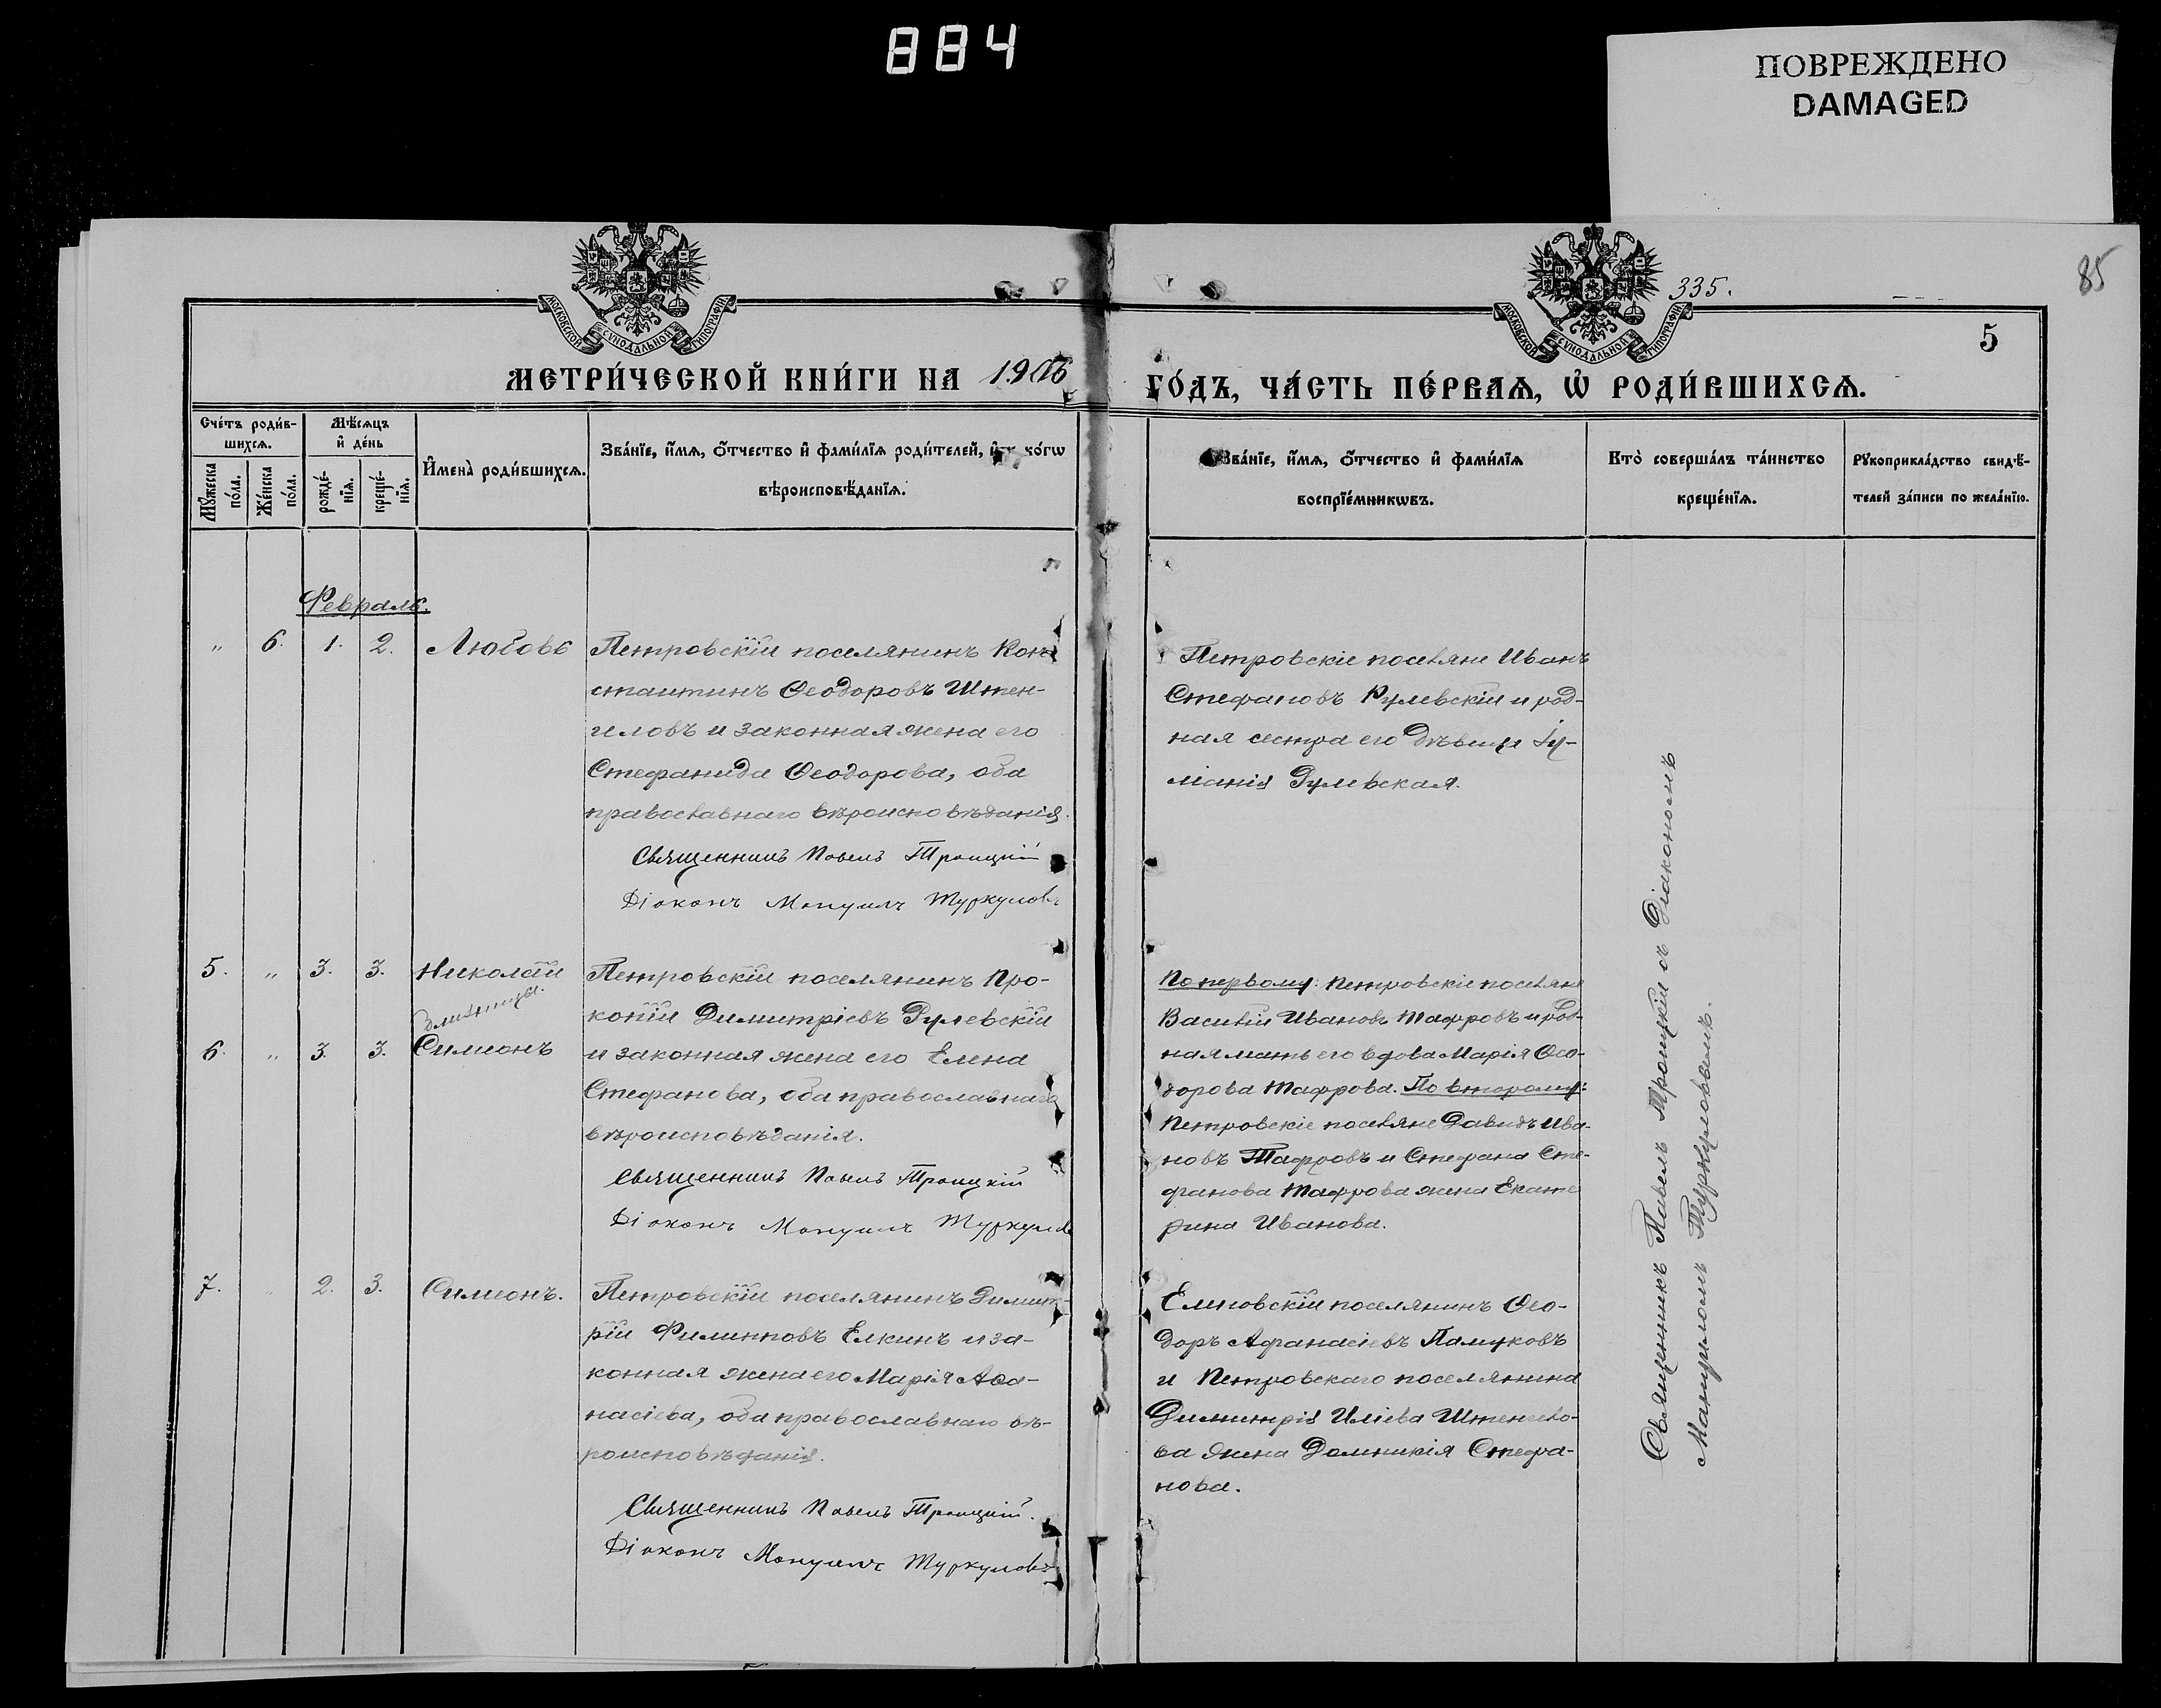 884
ПОВРЕЖДЕНО
DAMAGED
85
335.
5
МОСКОВСКОЙ СѴНОДАЛЬНОЙ ТИПОГРАФІИ
МОСКОВСКОЙ СѴНОДАЛЬНОЙ ТИПОГРАФІИ
МЕТРИ́ЧЕСКОЙ КНИ́ГИ НА 1906
ГО́ДЪ, ЧА́СТЬ ПЕ́РВАѦ, Ѽ РОДИ́ВШИХСѦ.
Сче́тъ роди́в-
шихсѧ.
Мѣ́сѧцъ
и҆ де́нь
Мꙋ́жеска
по́ла.
Же́нска
по́ла.
рожде́-
нїѧ.
креще́-
нїѧ.
И҆мена̀ роди́вшихсѧ.
Зва́нїе, и҆́мѧ, ѻ҆́тчество и҆ фами́лїѧ роди́телей, и҆ ко́гѡ
вѣроисповѣ́данїѧ.
Зва́нїе, и҆́мѧ, ѻ҆́тчество и҆ фами́лїѧ
воспрїе́мникѡвъ.
Кто̀ соверша́лъ та́инство
креще́нїѧ.
Рꙋкоприкла́дство свидѣ́-
телей за́писи по жела́нїю.
Февраль.
„ 6. 1. 2. Любовь
Петровскій поселянинъ Кон-
стантинъ Ѳеодоровъ Штен-
геловъ и законная жена его
Стефанида Ѳеодорова, оба
православнаго вѣроисповѣданія.
Священникъ Павелъ Троицкій
Діаконъ Мануилъ Туркуловъ
Петровскіе поселяне Иванъ
Стефановъ Гулевскій и род-
ная сестра его дѣвица Іу-
ліанія Гулевская.
5. „ 3. 3. Николай
близнецы.
6. „ 3. 3. Симеонъ
Петровскій поселянинъ Про-
копій Димитріевъ Гулевскій
и законная жена его Елена
Стефанова, оба православнаго
вѣроисповѣданія.
Священникъ Павелъ Троицкій
Діаконъ Мануилъ Туркуловъ
По первому: Петровскіе поселяне
Василій Ивановъ Тафровъ и род-
ная мать его вдова Марія Ѳео-
дорова Тафрова. По второму:
Петровскіе поселяне Давидъ Ива-
новъ Тафровъ и Стефана Сте-
фанова Тафрова жена Екате
рина Иванова.
7. „ 2. 3. Симеонъ.
Петровскій поселянинъ Димит-
рій Филипповъ Елкинъ и за-
конная жена его Марія Аѳа-
насіева, оба православнаго вѣ-
роисповѣданія.
Священникъ Павелъ Троицкій.
Діаконъ Мануилъ Туркуловъ
поселянинъ Ѳео-
доръ Афанасіевъ Памуковъ
и Петровскаго поселянина
Димитрія Иліева Штенгело-
ва жена Домникія Стефа-
нова.
Священникъ Павелъ Троицкій съ Діакономъ
Мануиломъ Туркуловымъ.